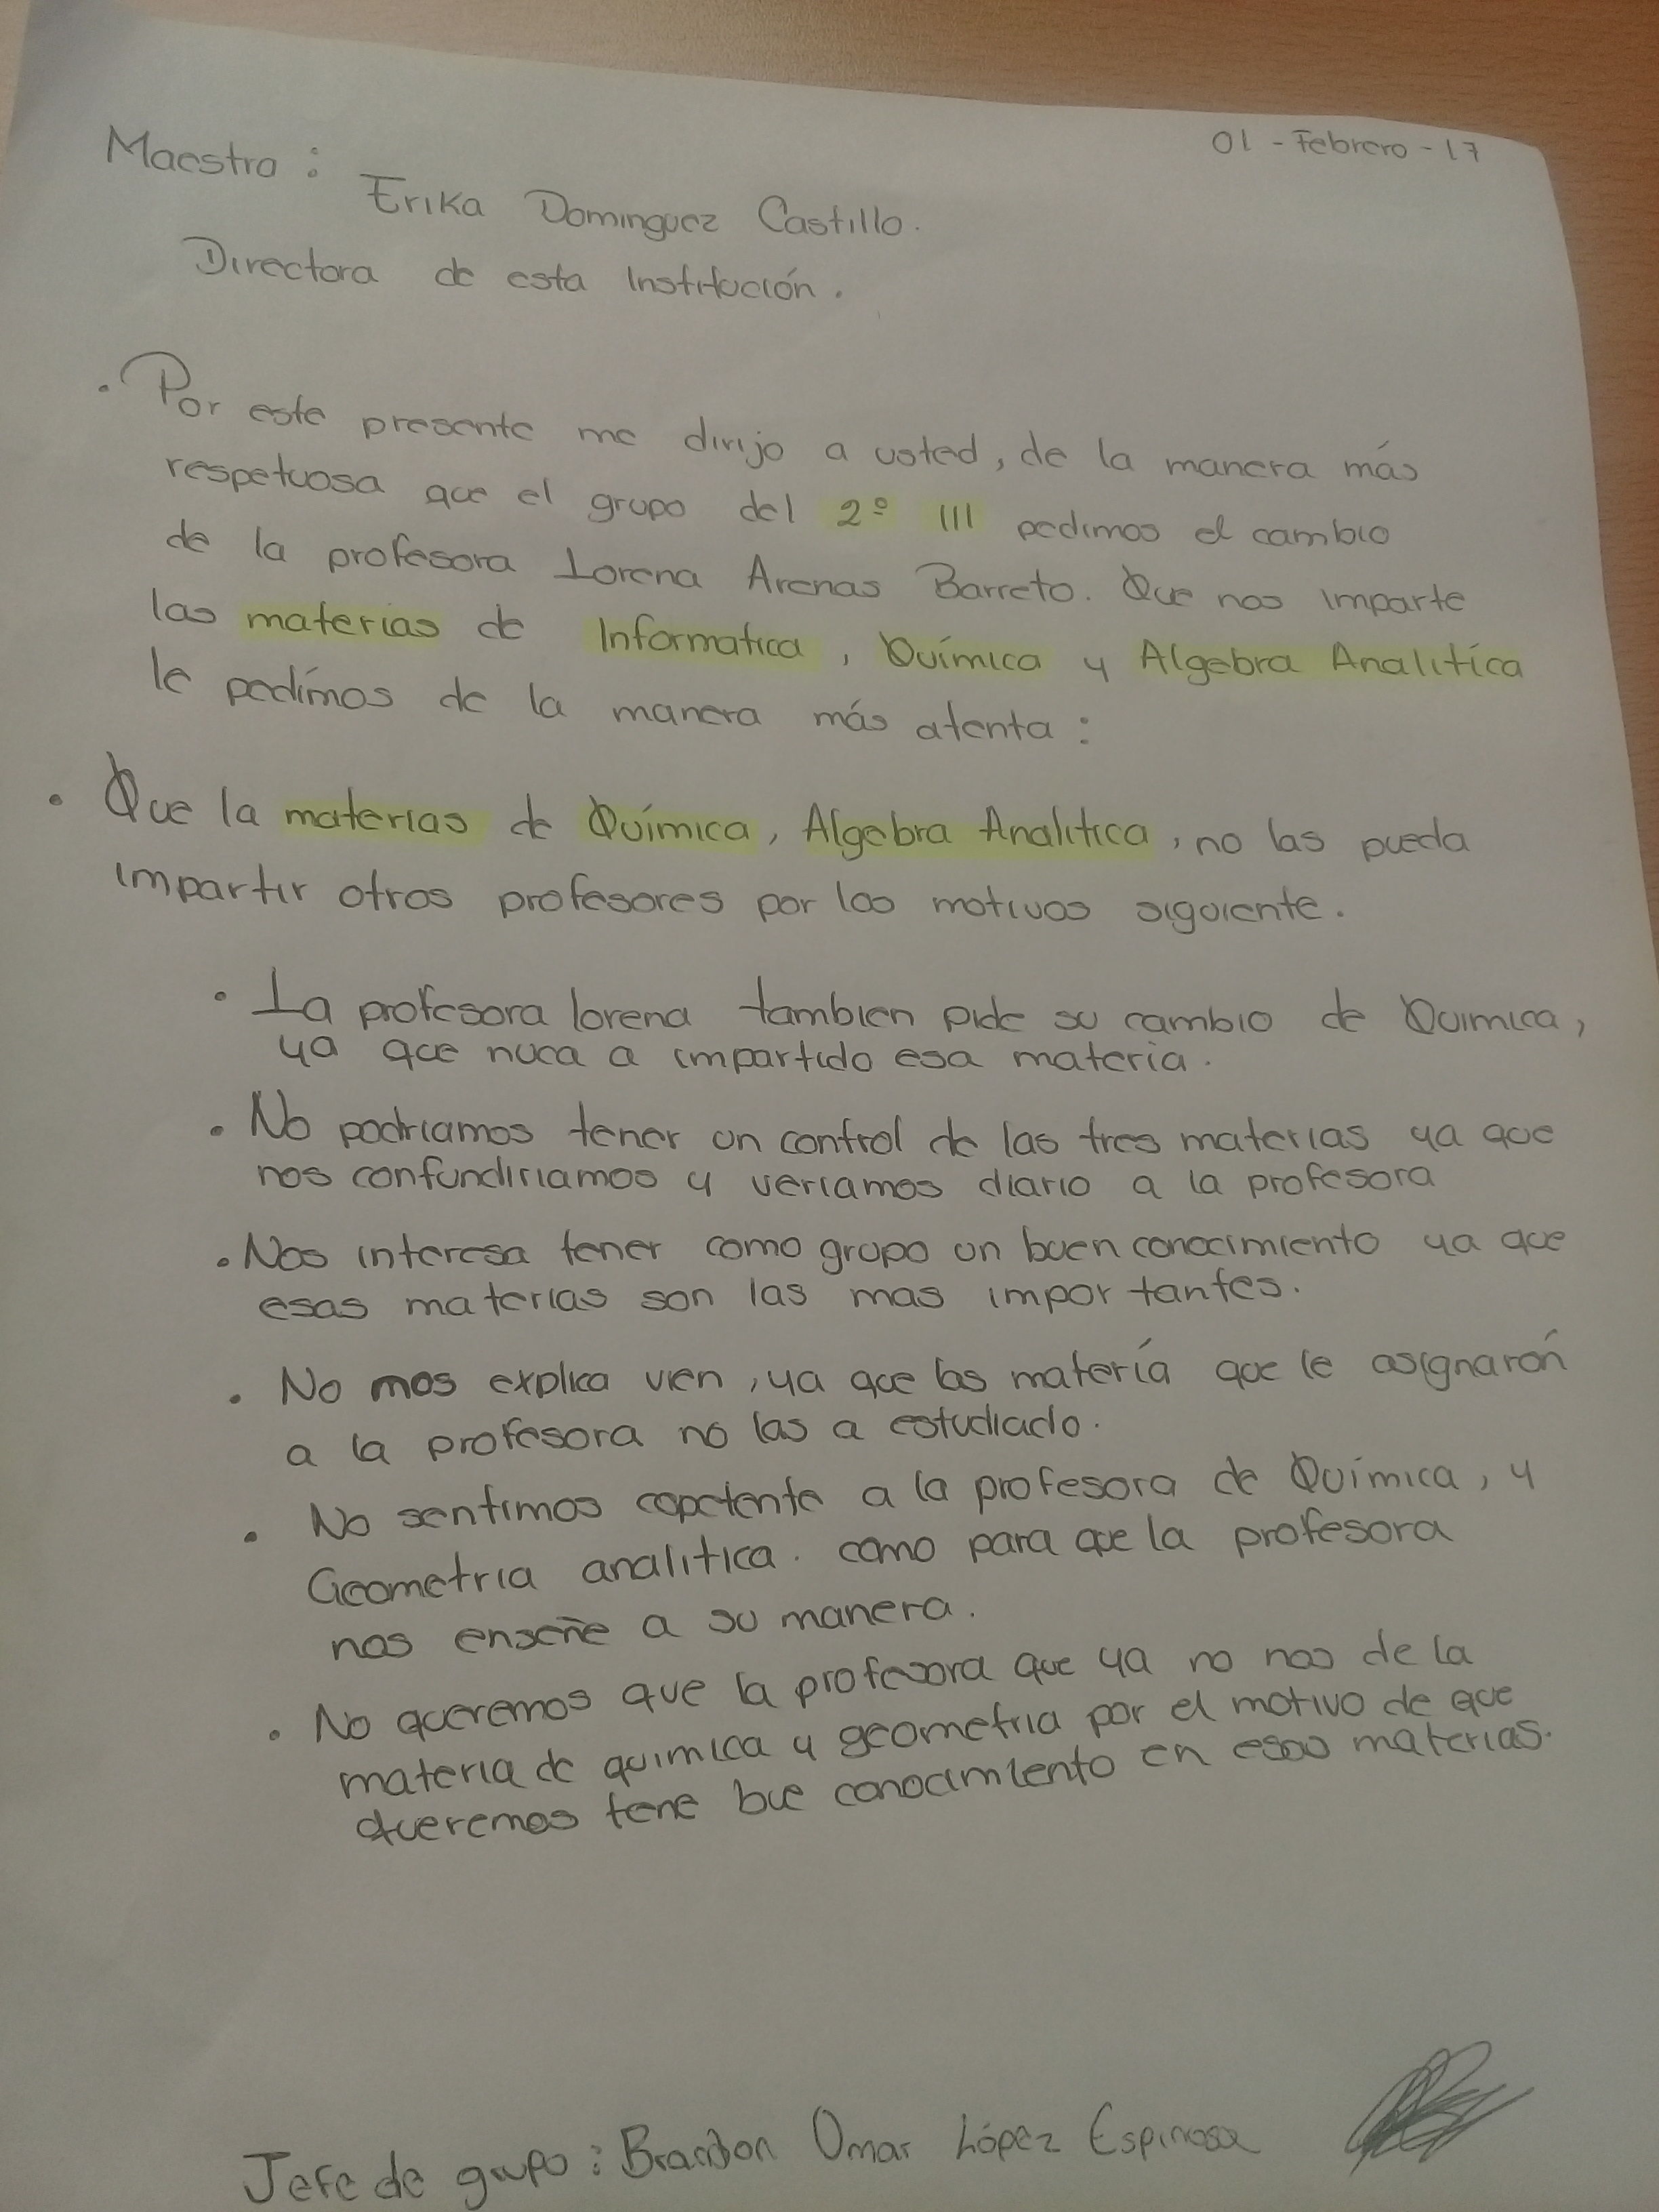 01 - Febrero - 17
Maestra :
Erika Dominguez Castillo.
Directora de esta Institución.
• Por este presente me dirijo a usted, de la manera más
respetuosa que el grupo del 2º III pedimos el cambio
de la profesora Lorena Arenas Barreto. Que nos imparte
las materias de Informatica, Química y Algebra Analítica
le pedímos de la manera más atenta :
• Que la materias de Química, Algebra Analitica, no las pueda
impartir otros profesores por los motivos siguiente.
• La profesora lorena tambien pide su cambio de Quimica,
ya que nuca a impartido esa materia.
• No podriamos tener un control de las tres materias ya que
nos confundiriamos y veriamos diario a la profesora
• Nos interesa tener como grupo un buen conocimiento ya que
esas materias son las mas importantes.
• No mos explica vien, ya que las matería que le asignarón
a la profesora no las a estudiado.
• No sentimos copetente a la profesora de Química, y
Geometria analitica. como para que la profesora
nos enseñe a su manera.
• No queremos que la profesora que ya no nos de la
materia de quimica y geometria por el motivo de que
queremos tene bue conocimiento en esas materias.
Jefe de grupo : Brandon Omar López Espinosa